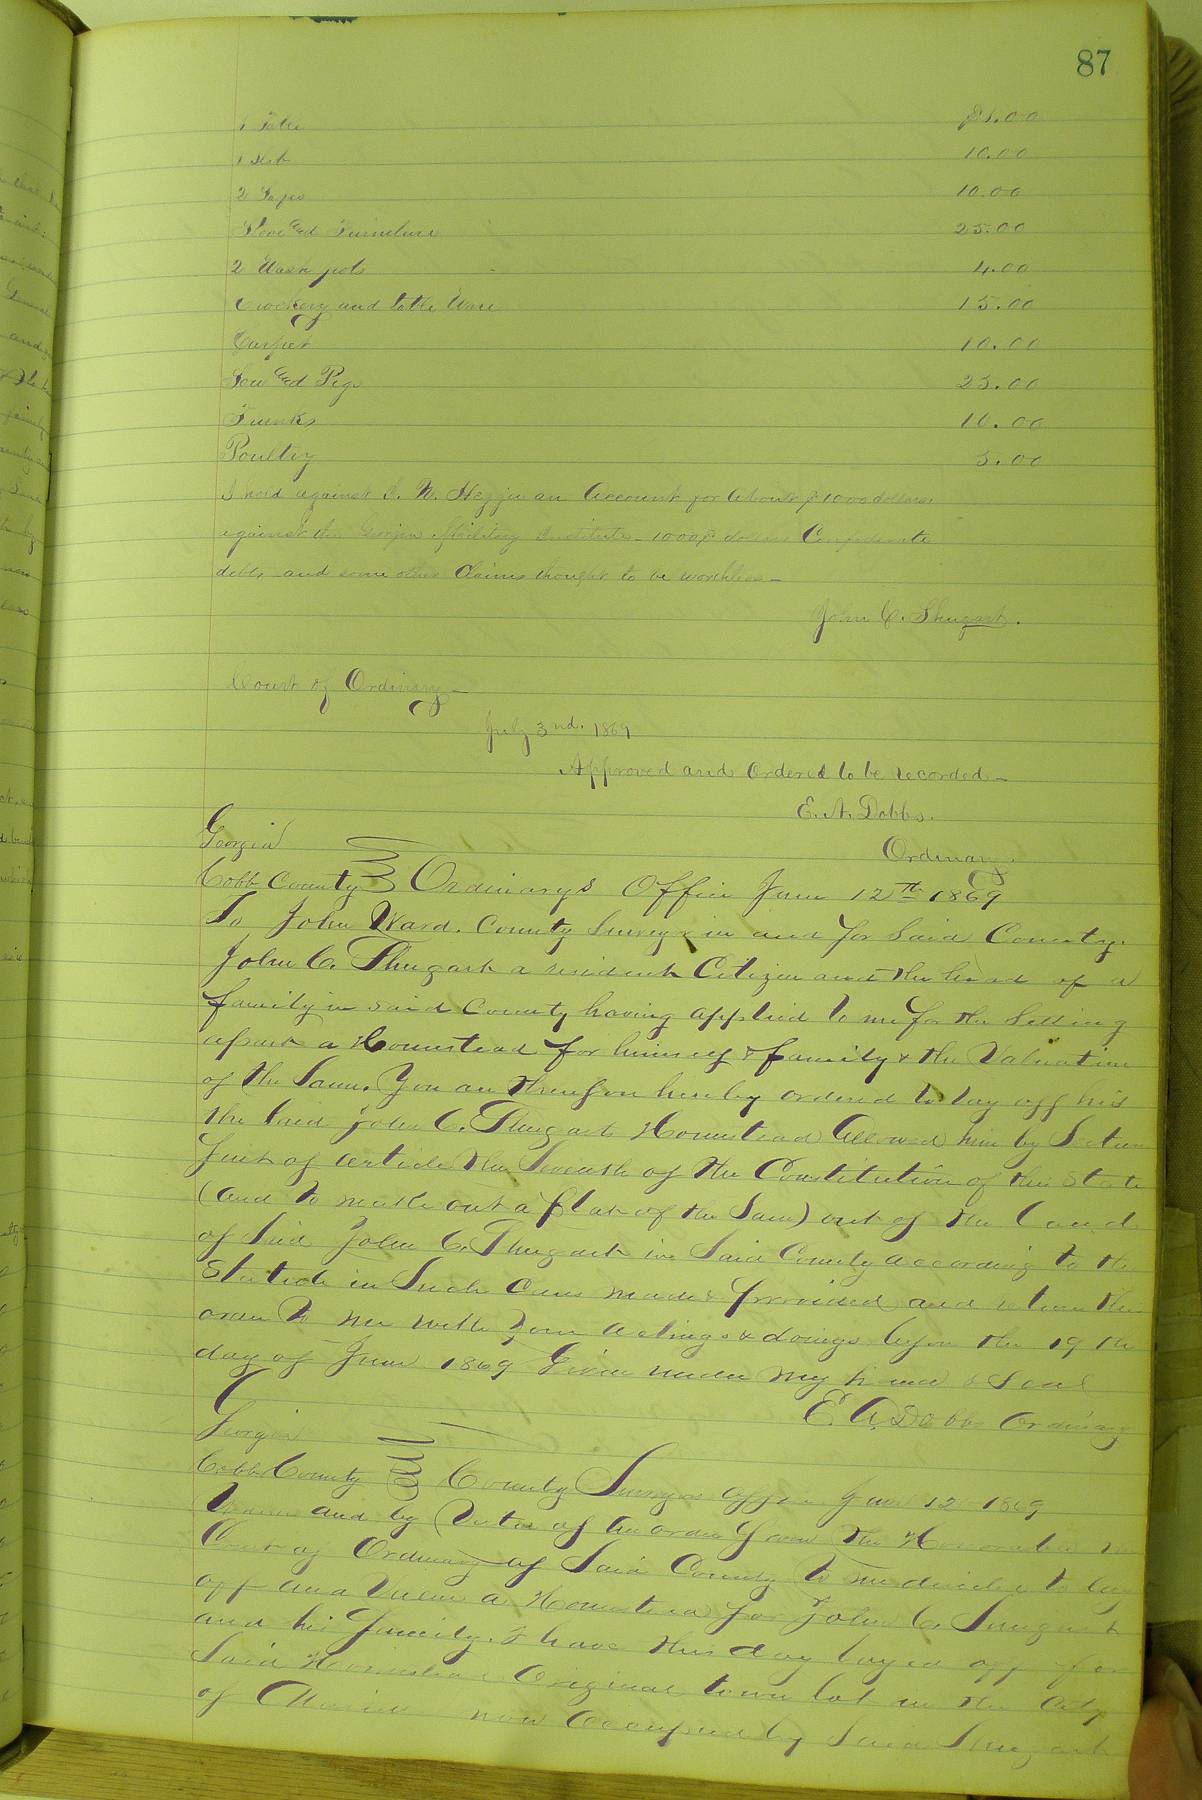 87
1 Table $1.00
1 10.00
2 10.00
Stove and Furniture 25.00
2 Wash pots 4.00
Crockery and table Ware 15.00
Carpet 10.00
Sow and Pigs 25.00
Trunks 10.00
Poultry 5.00
I hold against an Account for about $1000 dollars
against the Georgia Military Institute 1000$ dollars Confederate
debts and some other Claims thought to be worthless -
John C. Shugart.
Court of Ordinary -
July 3nd. 1869
Approved and Ordered to be recorded -
E. A. Dobbs.
Ordinary.
Georgia
Cobb County } Ordinarys Office June 12th 1869
To John Ward. County Surveyor in and for Said County.
John C. Shugart a resident Citizen and the head of a
family in said County having applied to me for the Setting
apart a Homestead for himself & family & the Valuation
of the Same. You are therefore hereby ordered to lay off his
the Said John C. Shugart Homestead Allowed him by Section
first of article the Seventh of the Constitution of this State
(and to make out a plat of the Same) out of the Land
of Said John C. Shugart in Said County according to the
Statute in Such Cases made & provided and return this
order to me with your actings & doings before the 19th
day of June 1869 Given under my hand & Seal
E A. Dobbs Ordinary
Georgia
Cobb County } County Surveyors office June 12 1869
Under and by Virtue of an order from the Honorable
Court of Ordinary of Said County to me directed to lay
off and Value a Homestead for John C. Shugart
and his family. I have this day layed off for
Said Homestead Original town lot in the City
of Marietta now Occupied by Said Shugart